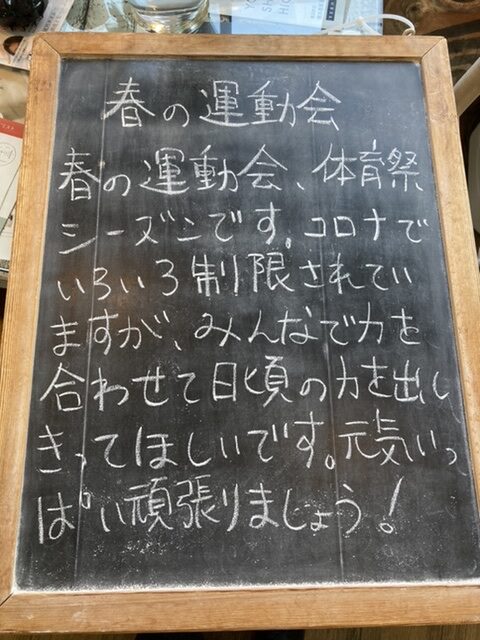 春の運動会
春の運動会、体育祭
シーズンです。コロナで
いろいろ制限されてい
ますが、みんなで力を
合わせて日頃の力を出し
きってほしいです。元気いっ
ぱい頑張りましょう!